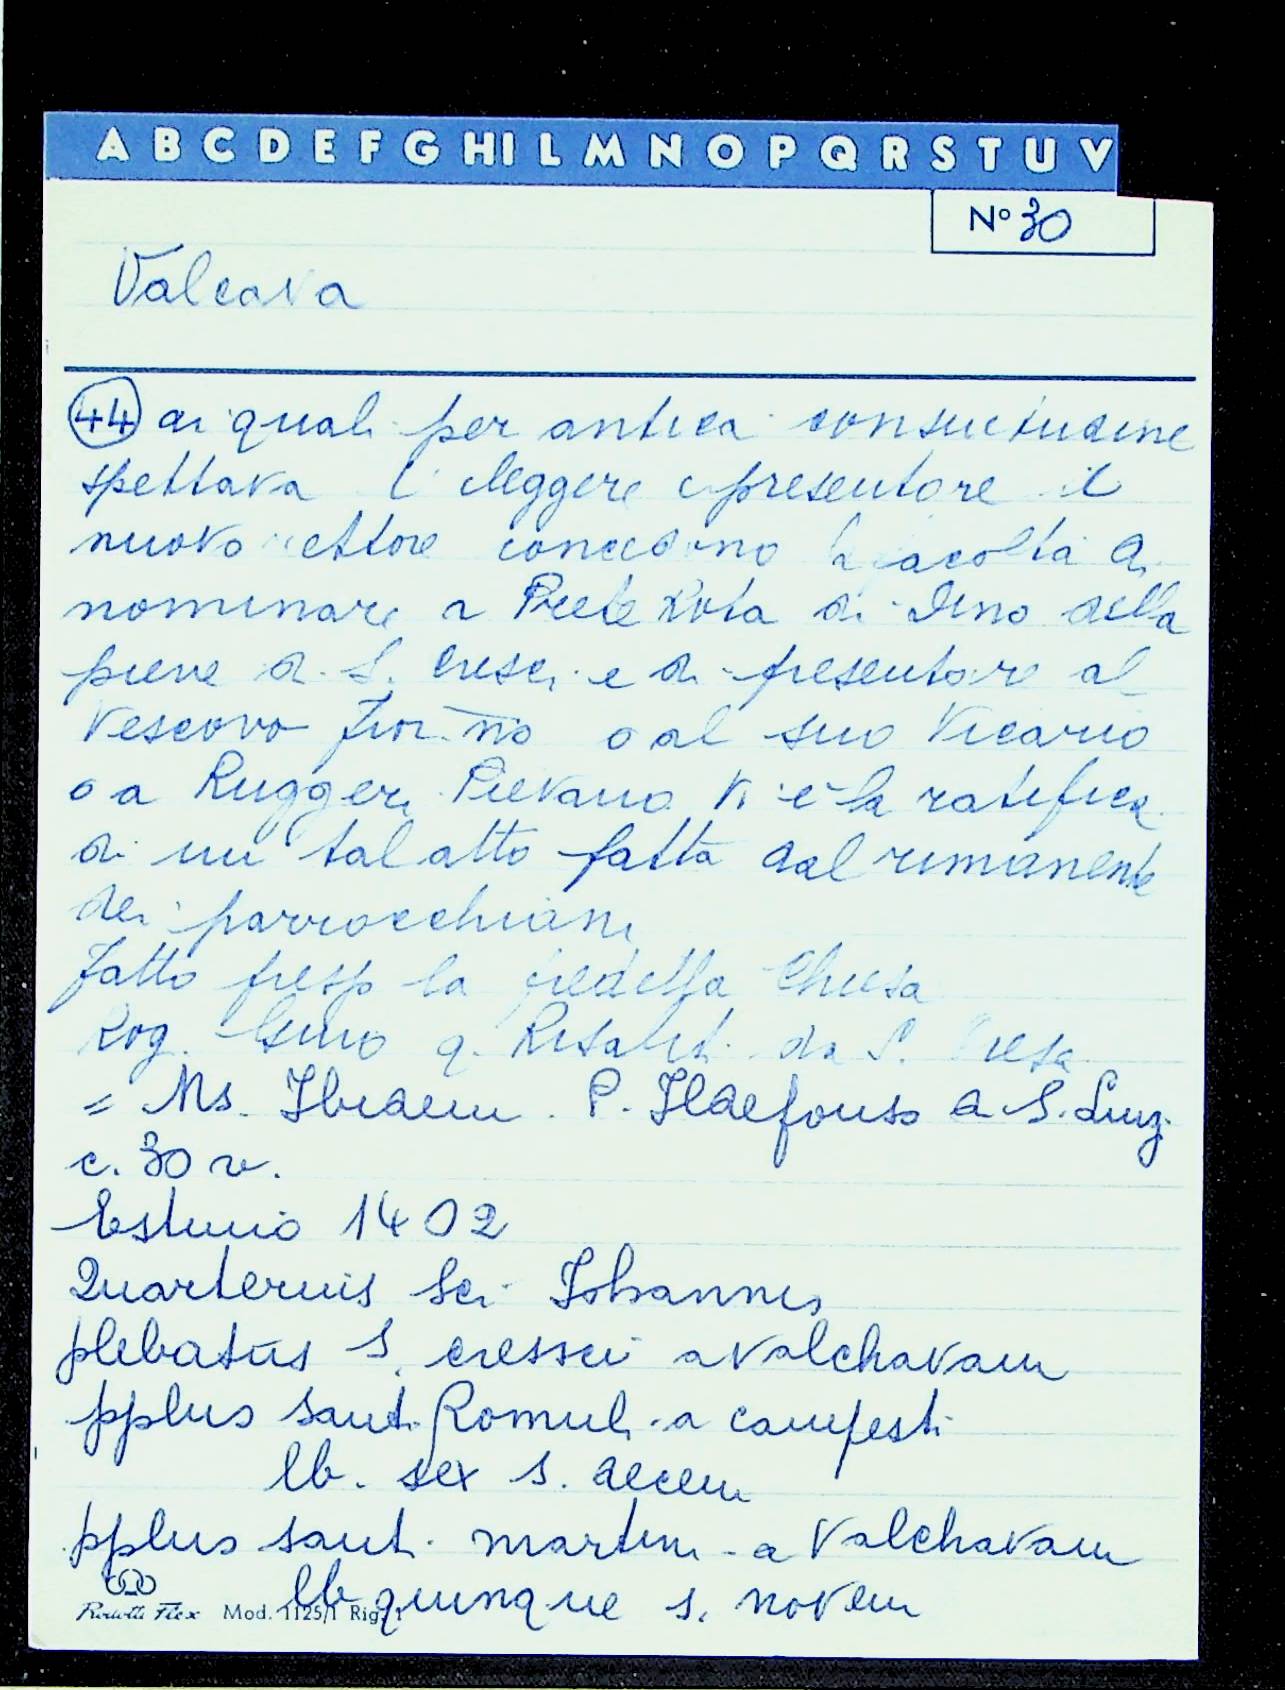 A B C D E F G H I L M N O P Q R S T U V
N° 30
Valcava
44 ai quali per antica consuetudine
spettava l'eleggere e presentare il
nuovo rettore concedono la facoltà di
nominare a Prete Rota di Dino della
pieve di S. Cresci e di presentare al
Vescovo Fior.no o al suo Vicario
o a Ruggeri Pievano Vi è la ratifica
di un tal atto fatta dal rimanente
dei parrocchiani
Fatto presso la predetta Chiesa
Rog. q. da S.
= Ms. Ibidem P. Ildefonso a S. Luig.
c. 30 v.
Estimo 1402
Quarteruis Sci Johannis
plebatus S. cressci a valchavam
pplus santi Romuli a campesti
lb. sex s. decem
pplus santi martini a Valchavam
lb quinque s. novem
Flex Mod. 1125/1 Rig. 1